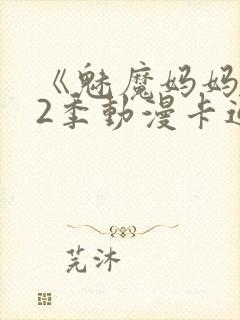 《魅魔妈妈
2季動漫卡通
芫沐